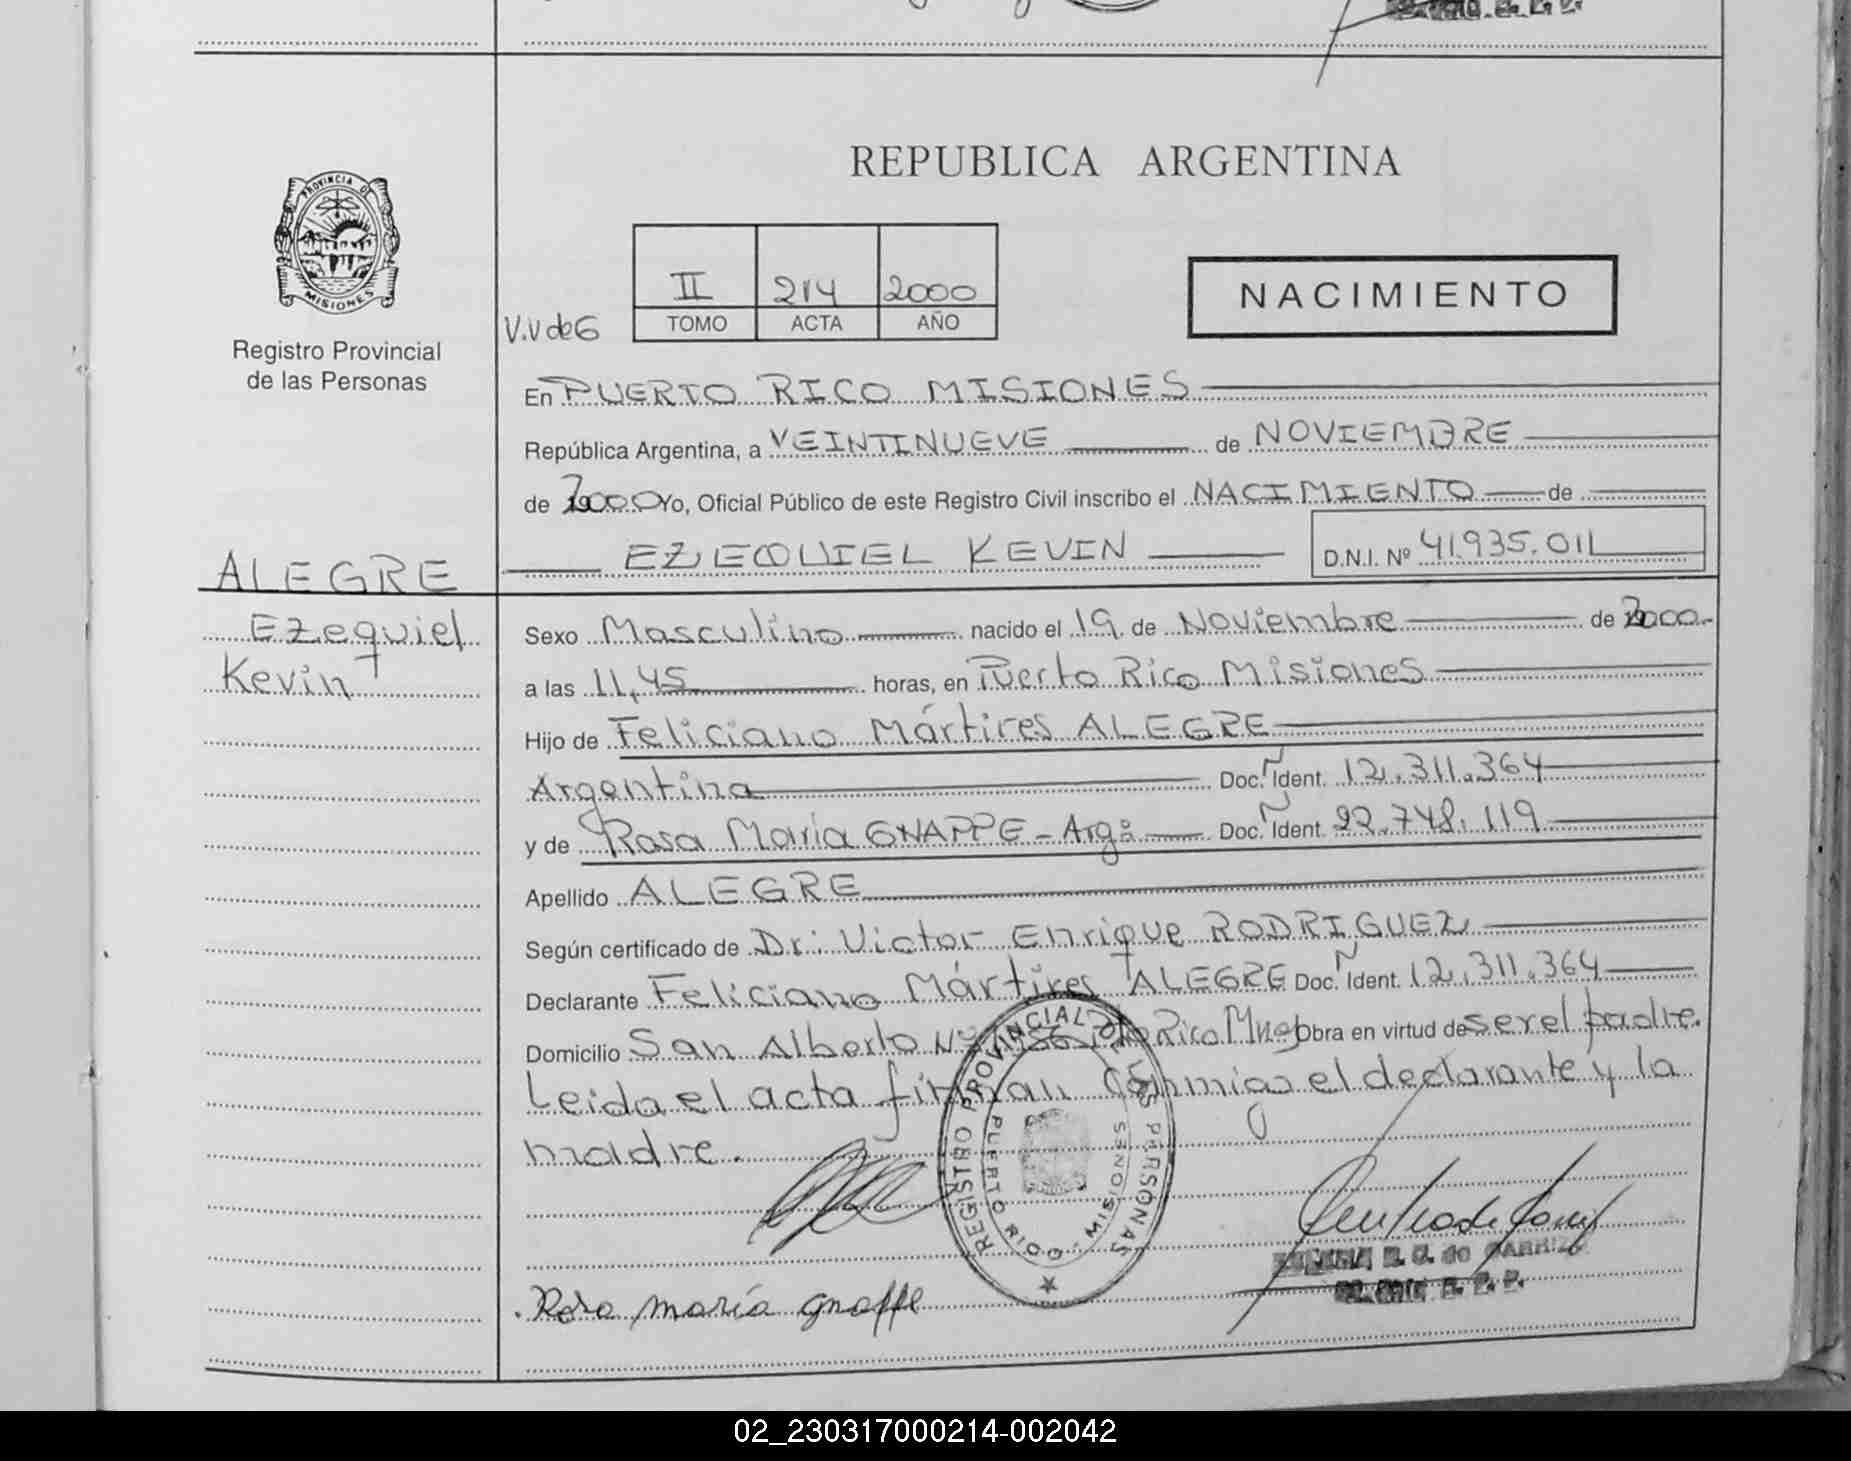 REPUBLICA ARGENTINA
PROVINCIA DE
MISIONES
Registro Provincial
de las Personas
II 214 2000
TOMO ACTA AÑO
V.V de G
NACIMIENTO
En PUERTO RICO MISIONES
República Argentina, a VEINTINUEVE de NOVIEMBRE
de 2000 Yo, Oficial Público de este Registro Civil inscribo el NACIMIENTO de
EZEQUIEL KEVIN D.N.I. Nº 41.935.011
ALEGRE
Ezequiel
Kevin
Sexo Masculino nacido el 19 de Noviembre de 2000.
a las 11,45 horas, en Puerto Rico Misiones
Hijo de Feliciano Mártires ALEGRE
Argentina Doc. Ident. 12.311.364
y de Rosa Maria GNAPPE - Arg: Doc. Ident. 22.748.119
Apellido ALEGRE
Según certificado de Dr: Victor Enrique RODRIGUEZ
Declarante Feliciano Mártires ALEGRE Doc. Ident. 12.311.364
Domicilio San Alberto Rico Obra en virtud de ser el padre.
Leida el acta firman el declarante y la
madre.
REGISTRO PROVINCIAL DE LAS PERSONAS
PUERTO RICO - MISIONES
Rosa maría gnappe
02_230317000214-002042